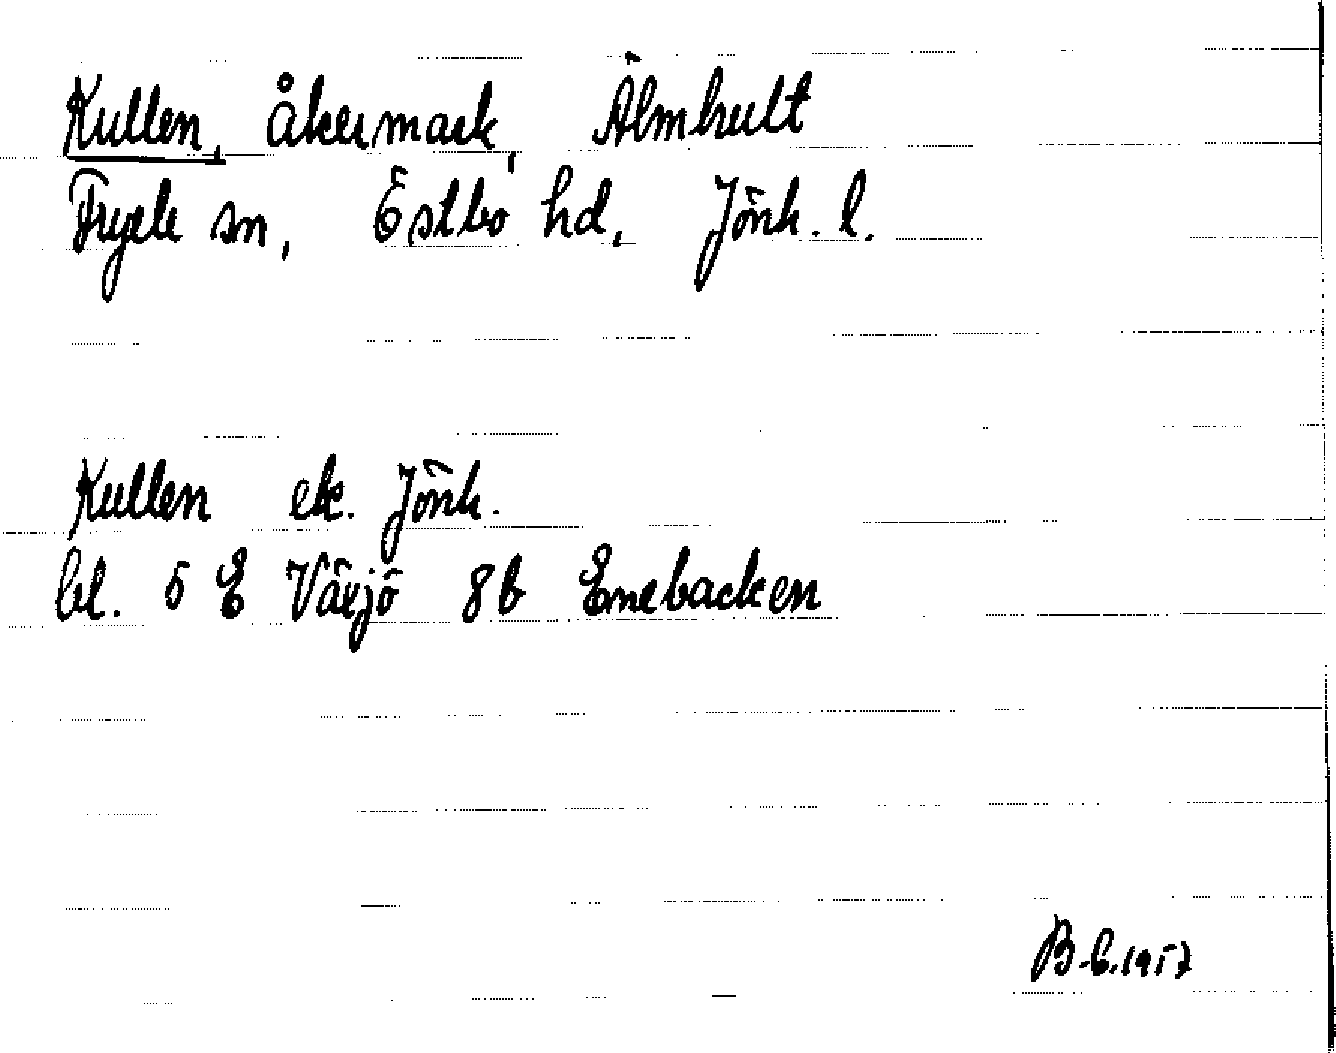 Kullen, åkermark, Älmhult
Fryele sn, Östbo hd, Jönk. l.
Kullen ek. Jönk.
bl. 5 E Växjö 8b Enebacken
B-b.1957